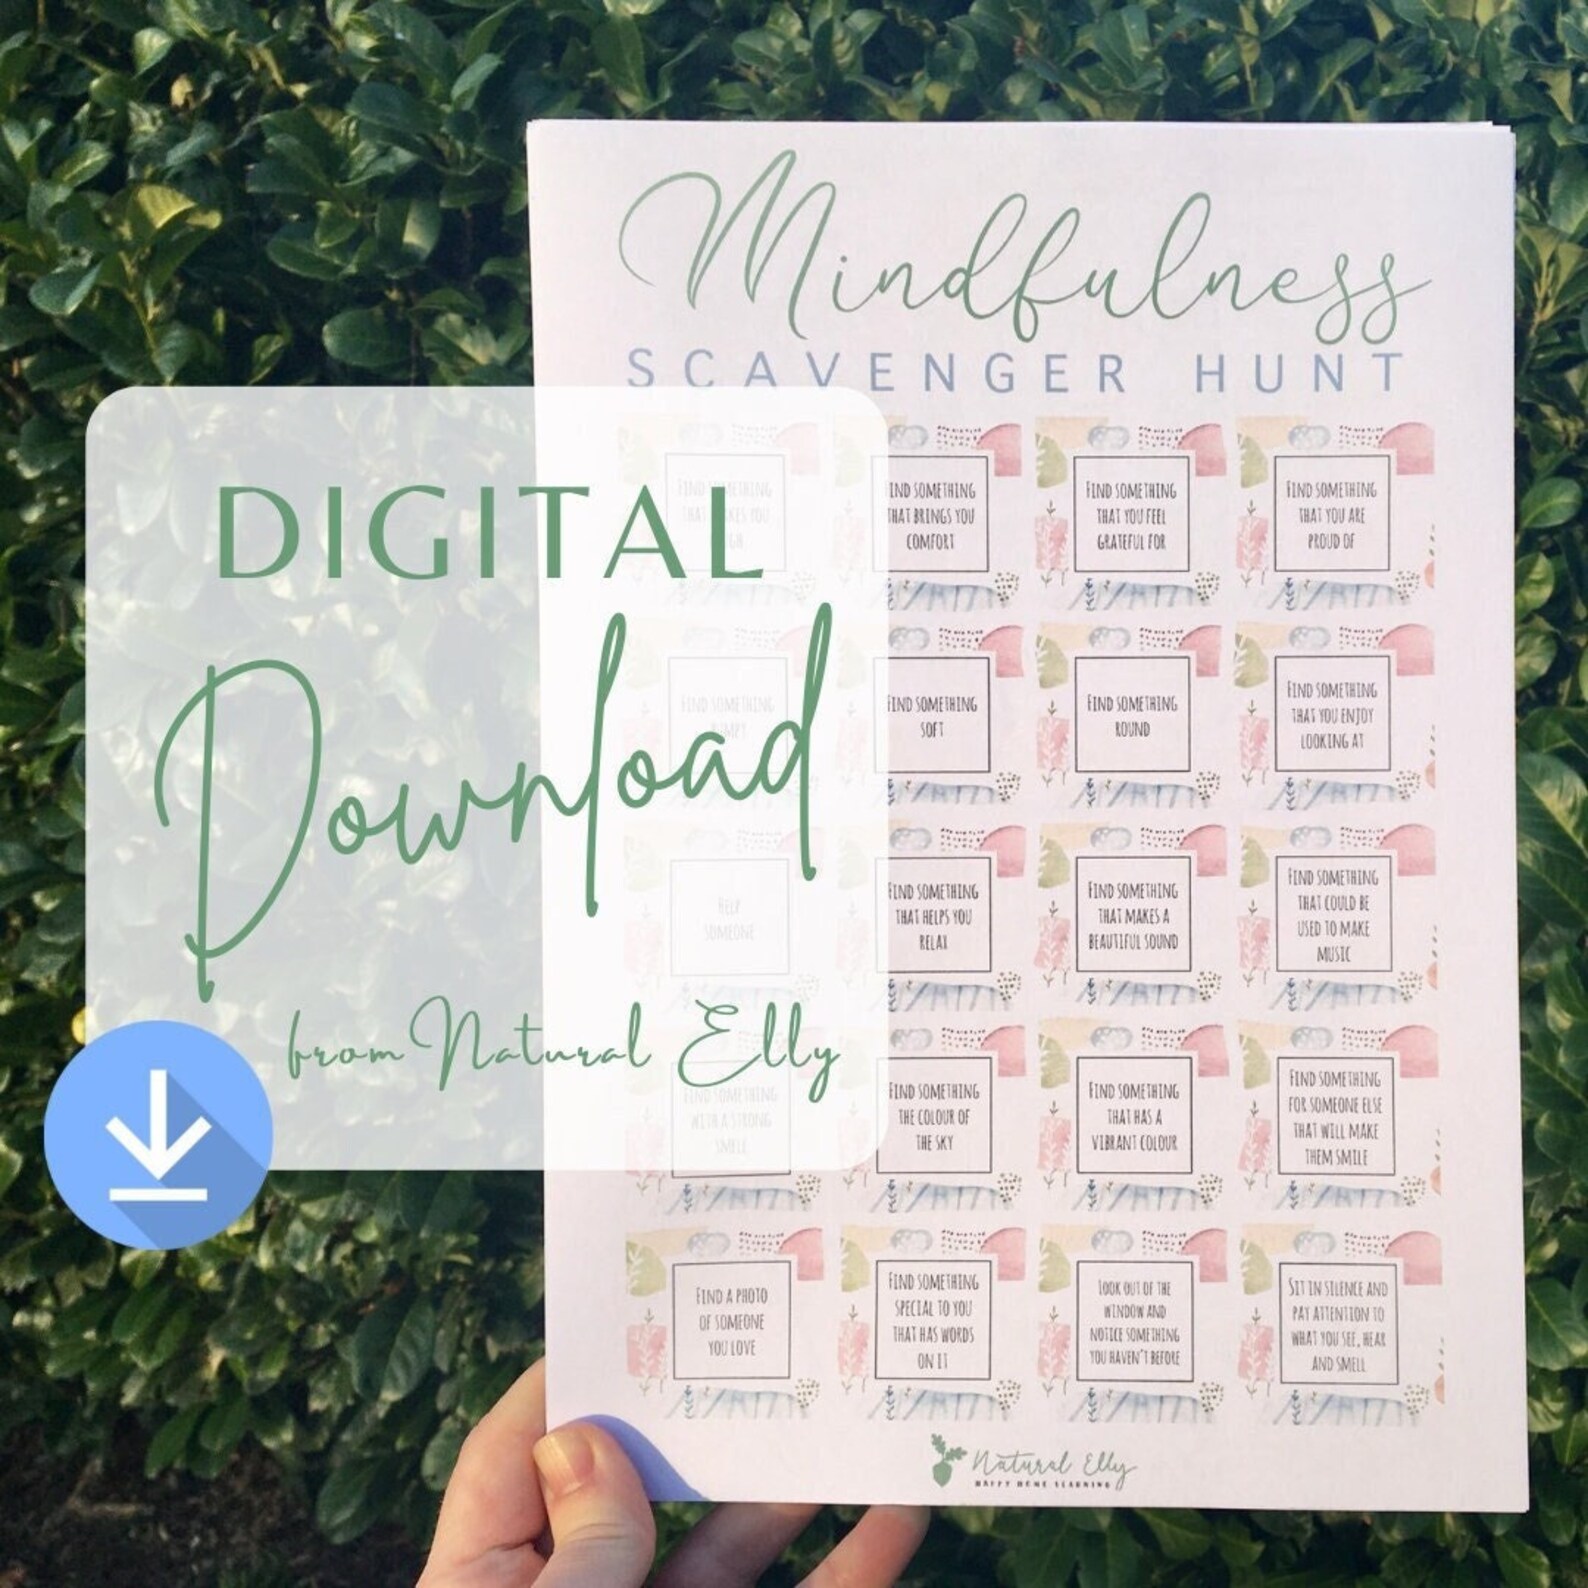 Mindfulness
SCAVENGER HUNT
DIGITAL
Download
from Natural Elly
FIND SOMETHING
THAT MAKES YOU
FIND SOMETHING
THAT BRINGS YOU
COMFORT
FIND SOMETHING
THAT YOU FEEL
GRATEFUL FOR
FIND SOMETHING
THAT YOU ARE
PROUD OF
FIND SOMETHING
BUMPY
FIND SOMETHING
SOFT
FIND SOMETHING
ROUND
FIND SOMETHING
THAT YOU ENJOY
LOOKING AT
HELP
SOMEONE
FIND SOMETHING
THAT HELPS YOU
RELAX
FIND SOMETHING
THAT MAKES A
BEAUTIFUL SOUND
FIND SOMETHING
THAT COULD BE
USED TO MAKE
MUSIC
FIND SOMETHING
WITH A STRONG
SMELL
FIND SOMETHING
THE COLOUR OF
THE SKY
FIND SOMETHING
THAT HAS A
VIBRANT COLOUR
FIND SOMETHING
FOR SOMEONE ELSE
THAT WILL MAKE
THEM SMILE
FIND A PHOTO
OF SOMEONE
YOU LOVE
FIND SOMETHING
SPECIAL TO YOU
THAT HAS WORDS
ON IT
LOOK OUT OF THE
WINDOW AND
NOTICE SOMETHING
YOU HAVEN'T BEFORE
SIT IN SILENCE AND
PAY ATTENTION TO
WHAT YOU SEE, HEAR
AND SMELL
Natural Elly
HAPPY HOME LEARNING